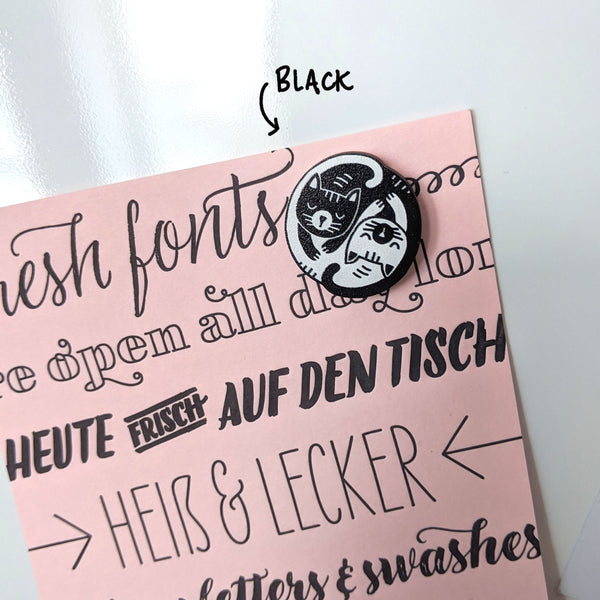 BLACK
fresh fonts
open all day lon
HEUTE FRISCH AUF DEN TISCH
HEIß & LECKER
letters & swashes